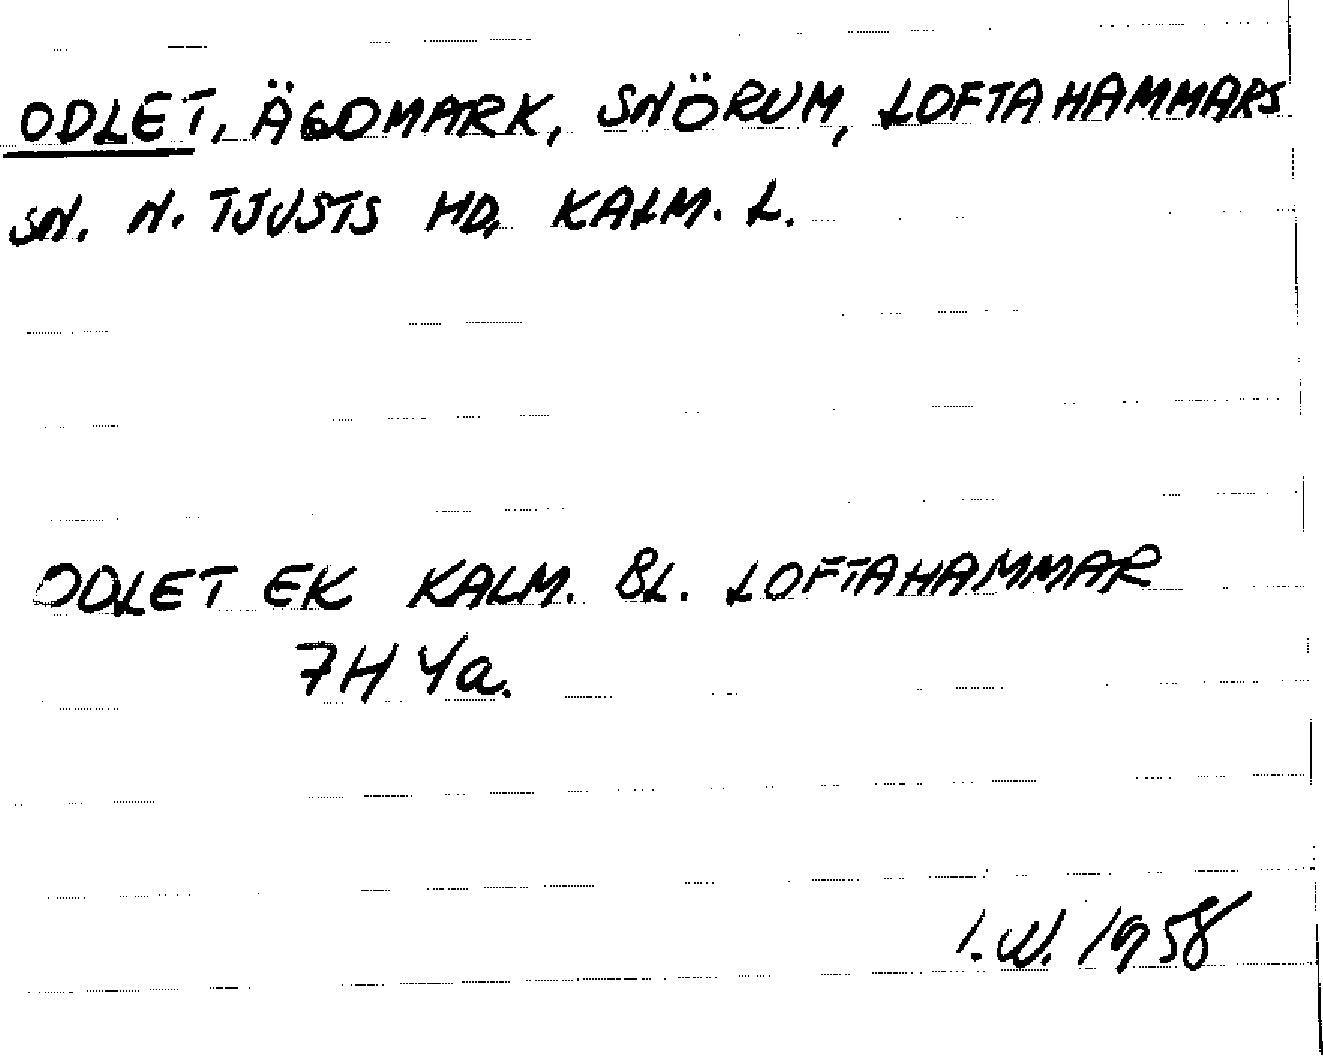 ODLET, ÄGOMARK, SNÖRUM, LOFTAHAMMARS
SN. N. TJUSTS HD, KALM. L.
ODLET EK KALM. BL. LOFTAHAMMAR
7H 4a.
I.W. 1958